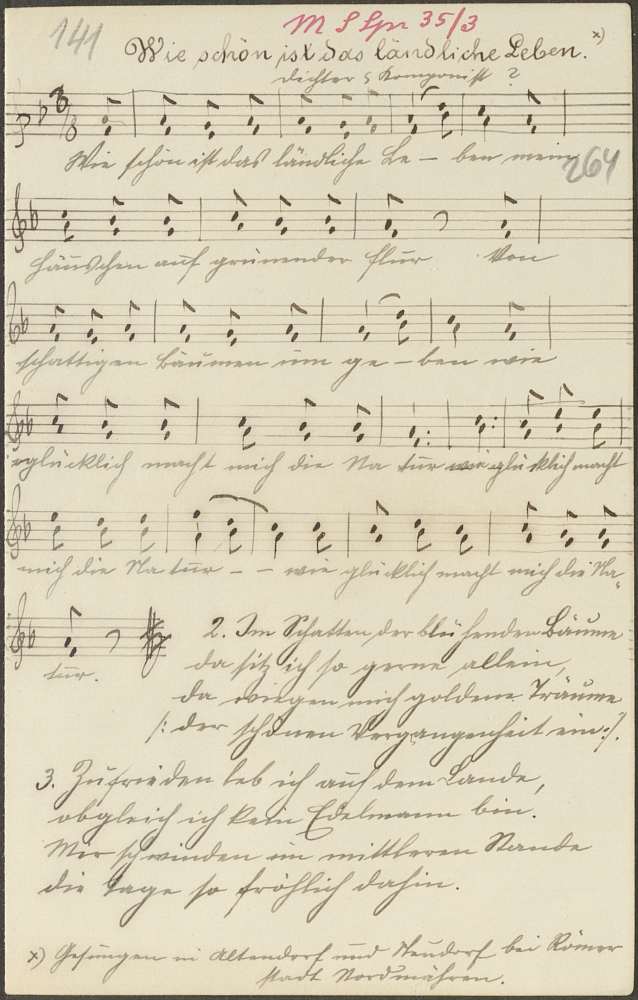 141
M S Spr 35/3
Wie schön ist das ländliche Leben. x)
Dichter & Komponist ?
3/8
Wie schön ist das ländliche Le - ben mein
264
Häuschen auf grünender Flur Von
schattigen Bäumen um ge - ben wie
glücklich macht mich die Na tur wie glücklich macht
mich die Na tur - - wie glücklich macht mich die Na-
tur.
2. Im Schatten der blühenden Bäume
da sitz ich so gerne allein,
da wiegen mich goldene Träume
/: der schönen Vergangenheit ein :/.
3. Zufrieden leb ich auf dem Lande,
obgleich ich kein Edelmann bin.
Mir schwinden im mittleren Stande
die Tage so fröhlich dahin.
x) Gesungen in Altendorf und Neudorf bei Römer
stadt Nordmähren.